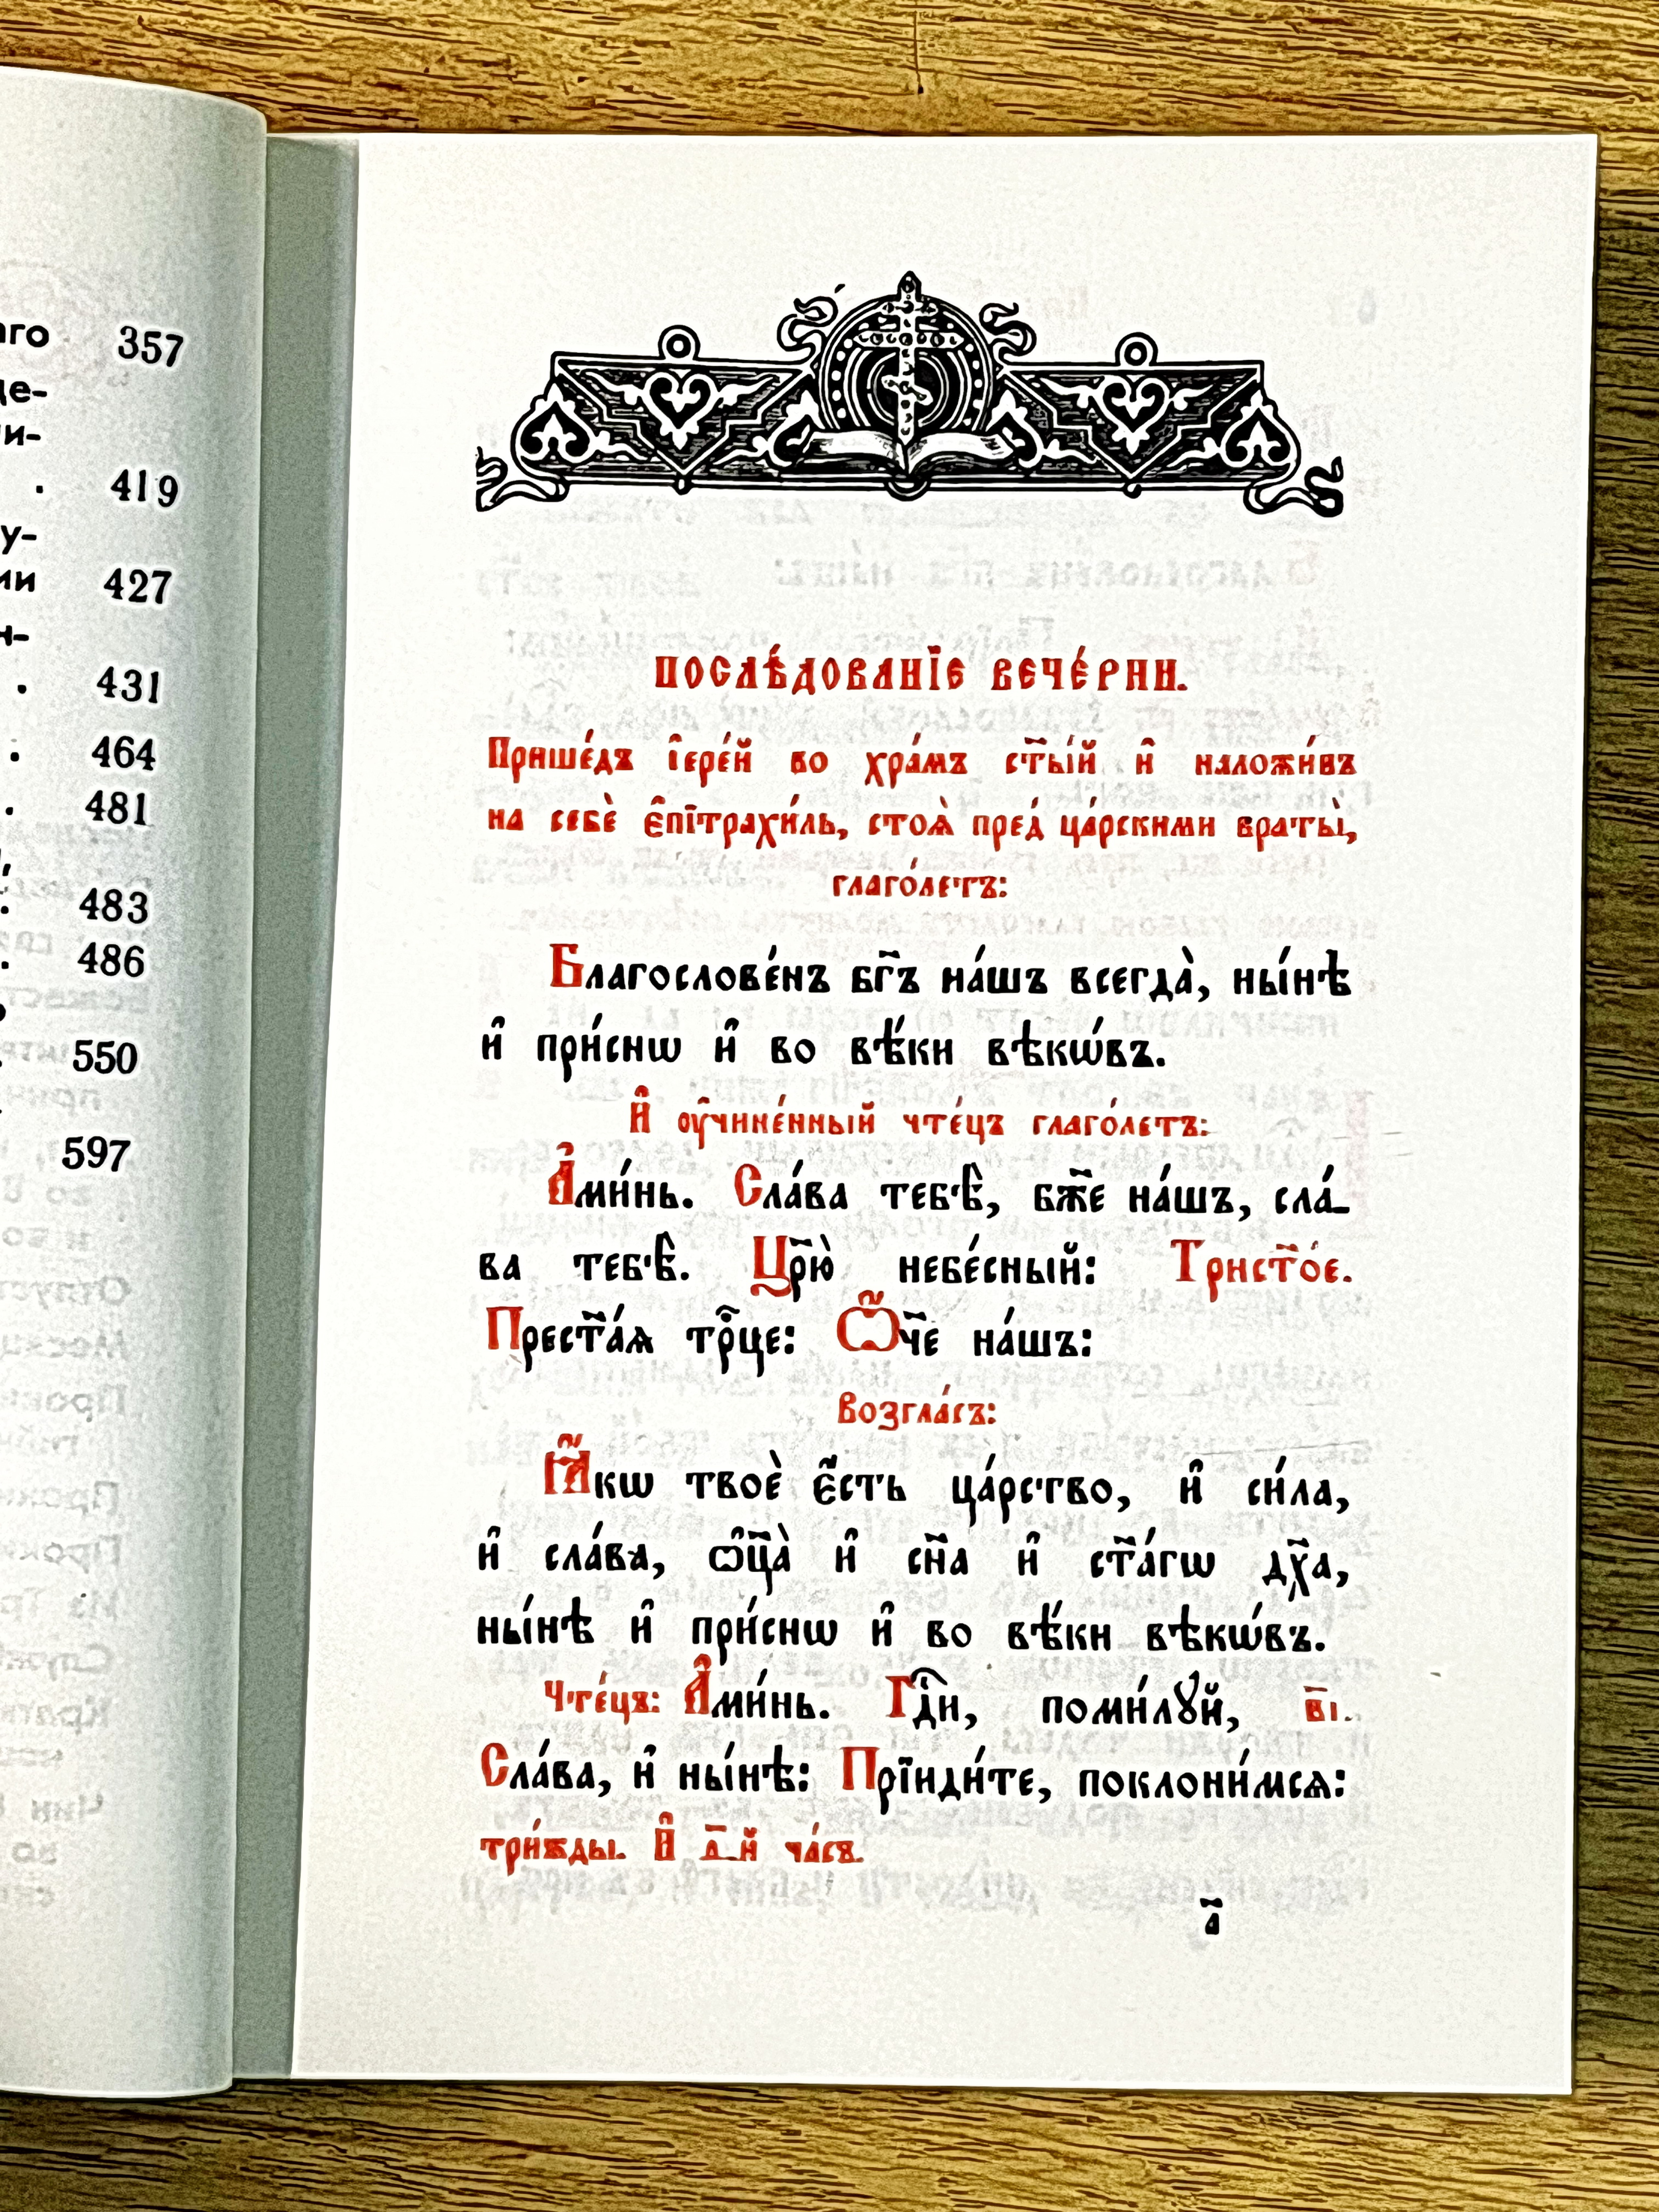 аго 357
де-
и-
. 419
у-
ии 427
н-
. 431
. 464
. 481
. 483
. 486
. 550
597
ПОСЛѢ́ДОВАНЇЕ ВЕЧЕ́РНИ.
Прише́дъ і҆ере́й во хра́мъ ст҃ы́й и҆ наложи́въ
на себѐ є҆пїтрахи́ль, стоѧ̀ пред̾ ца́рскими враты̀,
глаго́летъ:
Благослове́нъ бг҃ъ на́шъ всегда̀, ны́нѣ
и҆ при́снѡ и҆ во вѣ́ки вѣкѡ́въ.
И҆ ᲂу҆чине́нный чте́цъ глаго́летъ:
А҆ми́нь. Сла́ва тебѣ̀, бж҃е на́шъ, сла́-
ва тебѣ̀. Цр҃ю̀ небе́сный: Трист҃о́е.
Прест҃а́ѧ трⷪ҇це: Ѻ҆́ч҃е на́шъ:
Возгла́съ:
Ꙗ҆́кѡ твоѐ є҆́сть ца́рство, и҆ си́ла,
и҆ сла́ва, ѻ҆ц҃а̀ и҆ сн҃а и҆ ст҃а́гѡ дх҃а,
ны́нѣ и҆ при́снѡ и҆ во вѣ́ки вѣкѡ́въ.
Чте́цъ: А҆ми́нь. Гдⷭ҇и, поми́лꙋй, в҃і.
Сла́ва, и҆ ны́нѣ: Прїиди́те, поклони́мсѧ:
три́жды. И҆ д҃-й ча́съ.
а҃